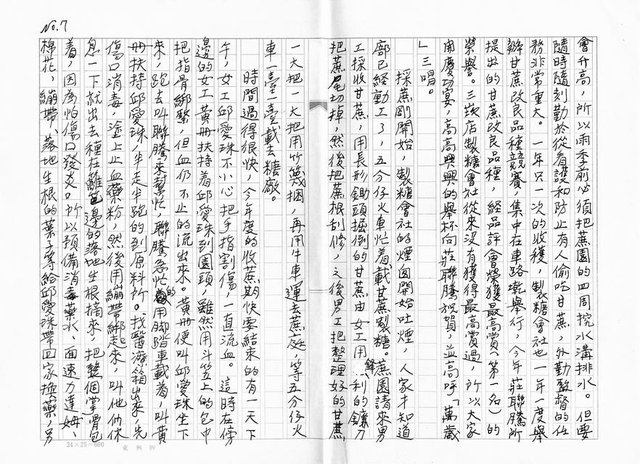 No.7
會升高，所以雨季前必須把蔗園的四周挖水溝排水。但要
隨時隨刻勤於從看護和防止有人偷吃甘蔗，外勤監督的任
務非常重大。一年只一次的收穫，製糖會社也一年一度舉
辦甘蔗改良品種競賽，集中在車路墘舉行，今年莊聯騰所
提出的甘蔗改良品種，經品評會榮獲最高賞（第一名）的
榮譽。三崁店製糖會社從來沒有獲得最高賞過，所以大家
開慶功宴，高高興興的舉杯向莊聯騰祝賀，並高呼「萬歲
」三唱。
採蔗剛開始，製糖會社的煙囪開始吐煙，人家才知道
廍已經動工了，五分仔火車忙着載甘蔗製糖。蔗園請來男
工採收甘蔗，用長形鋤頭掘倒的甘蔗由女工用鋒利的鐮刀
把蔗尾切掉，然後把蔗根刮修，之後男工把整理好的甘蔗
一大把一大把用竹篾捆，再用牛車運去蔗庭，等五分仔火
車一臺一臺載去糖廠。
時間過得很快，今年度的收蔗期快要結束的有一天下
午，女工邱愛珠不小心把手指割傷，一直流血。這時在傍
邊的女工黃册扶持着邱愛珠到園頭，雖然用斗笠上的包巾
把指骨綁緊，但血仍不止的流出來。黃册便叫邱愛珠坐下
來，跑去叫聯騰來幫忙，聯騰急忙的用脚踏車載着，叫黃
册扶持邱愛珠，半走半跑的到原料所。找醫藥箱出來，先
傷口消毒，塗上止血藥粉，然後用繃帶綁起來，叫他們休
息一下，就出去種在籬笆邊的落地生根摘來，把整個掌骨包
着，因為怕傷口發炎。所以預備消毒藥水、面速力達姆、
棉花，繃帶、落地生根的葉子等給邱愛珠帶回家換藥，另
24×25=600